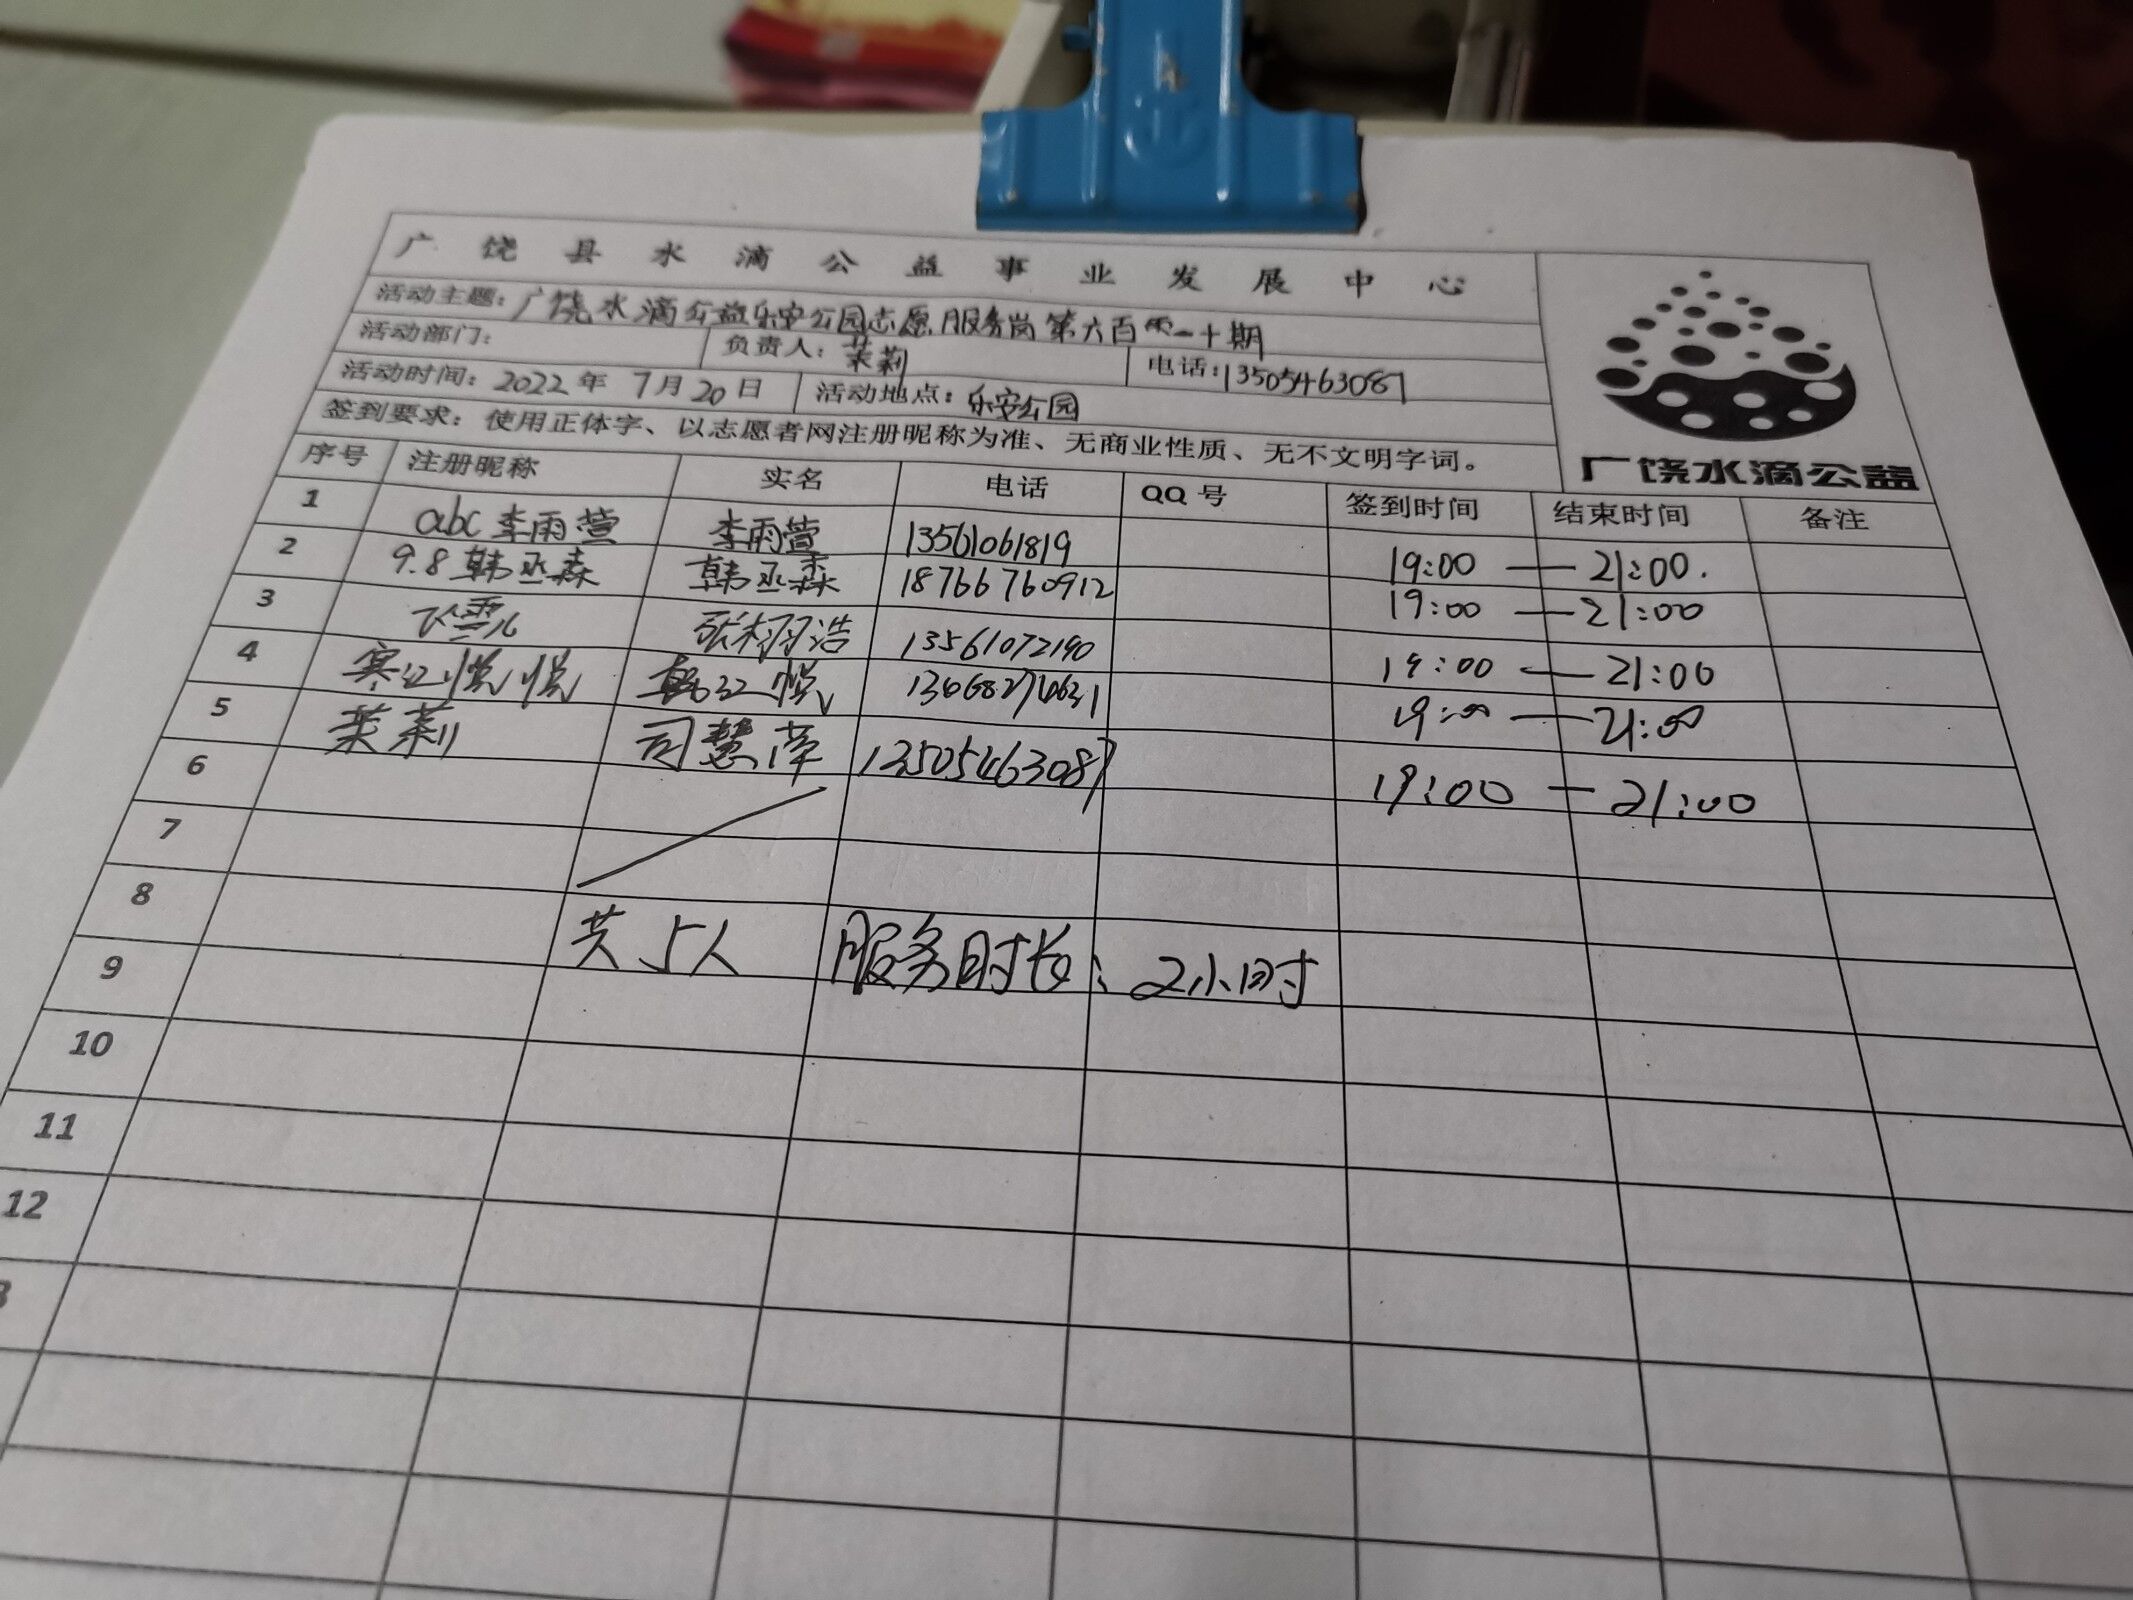 广饶县水滴公益事业发展中心
活动主题：广饶水滴公益乐安公园志愿服务岗第六百 一十期
活动部门： 负责人：茉莉 电话：13505463087
活动时间：2022年7月20日 活动地点：乐安公园
签到要求：使用正体字、以志愿者网注册昵称为准、无商业性质、无不文明字词。
广饶水滴公益
序号 注册昵称 实名 电话 QQ号 签到时间 结束时间 备注
1 abc李雨萱 李雨萱 13561061819 19:00 — 21:00.
2 9.8韩丞森 韩丞森 18766760912 19:00 — 21:00
3 飞雪儿 浩 13561072190 19:00 — 21:00
4 悦悦 悦 19:00 — 21:00
5 茉莉 司慧萍 13505463087 19:00 — 21:00
6
7
8 共5人 服务时长：2小时
9
10
11
12